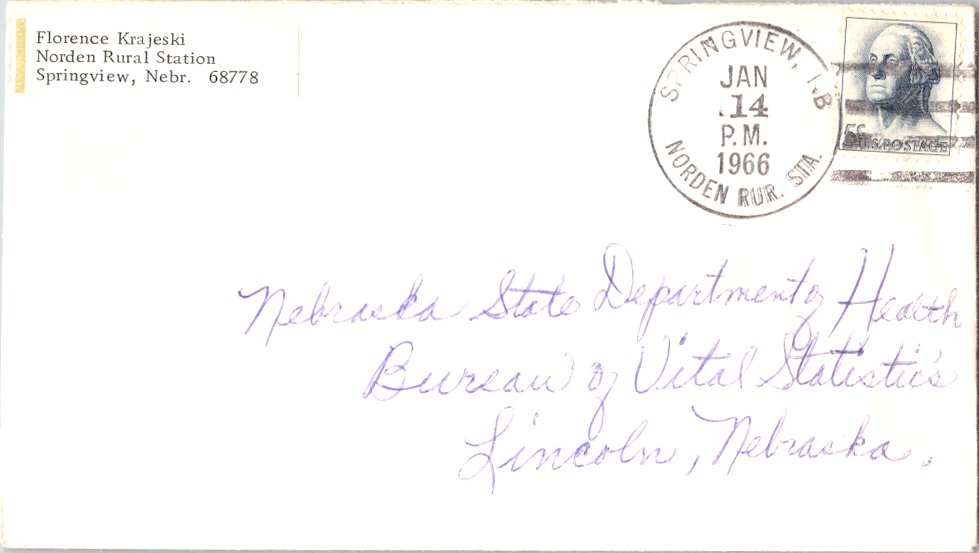 Florence Krajeski
Norden Rural Station
Springview, Nebr. 68778
SPRINGVIEW, NB
JAN
14
P.M.
1966
NORDEN RUR. STA.
5¢
U.S. POSTAGE
Nebraska State Department of Health
Bureau of Vital Statistics
Lincoln, Nebraska.